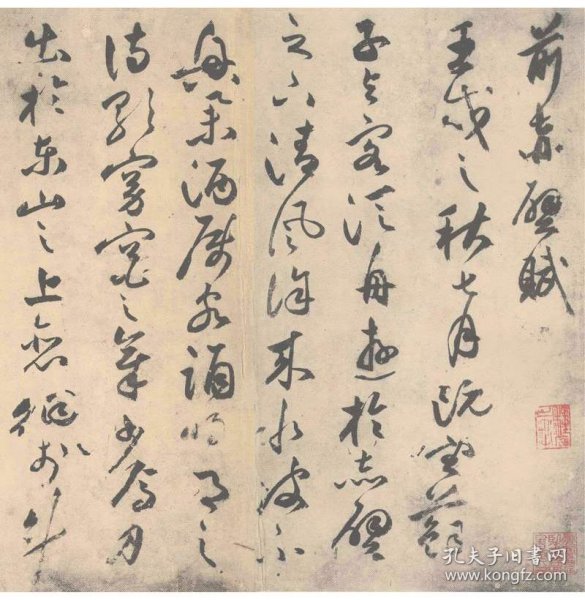 前赤壁賦
壬戌之秋七月既望蘇
子与客泛舟遊於赤壁
之下清風徐来水波不
興舉酒属客誦明月之
詩歌窈窕之章少焉月
出於東山之上徘徊於斗
孔夫子旧书网
www.kongfz.com